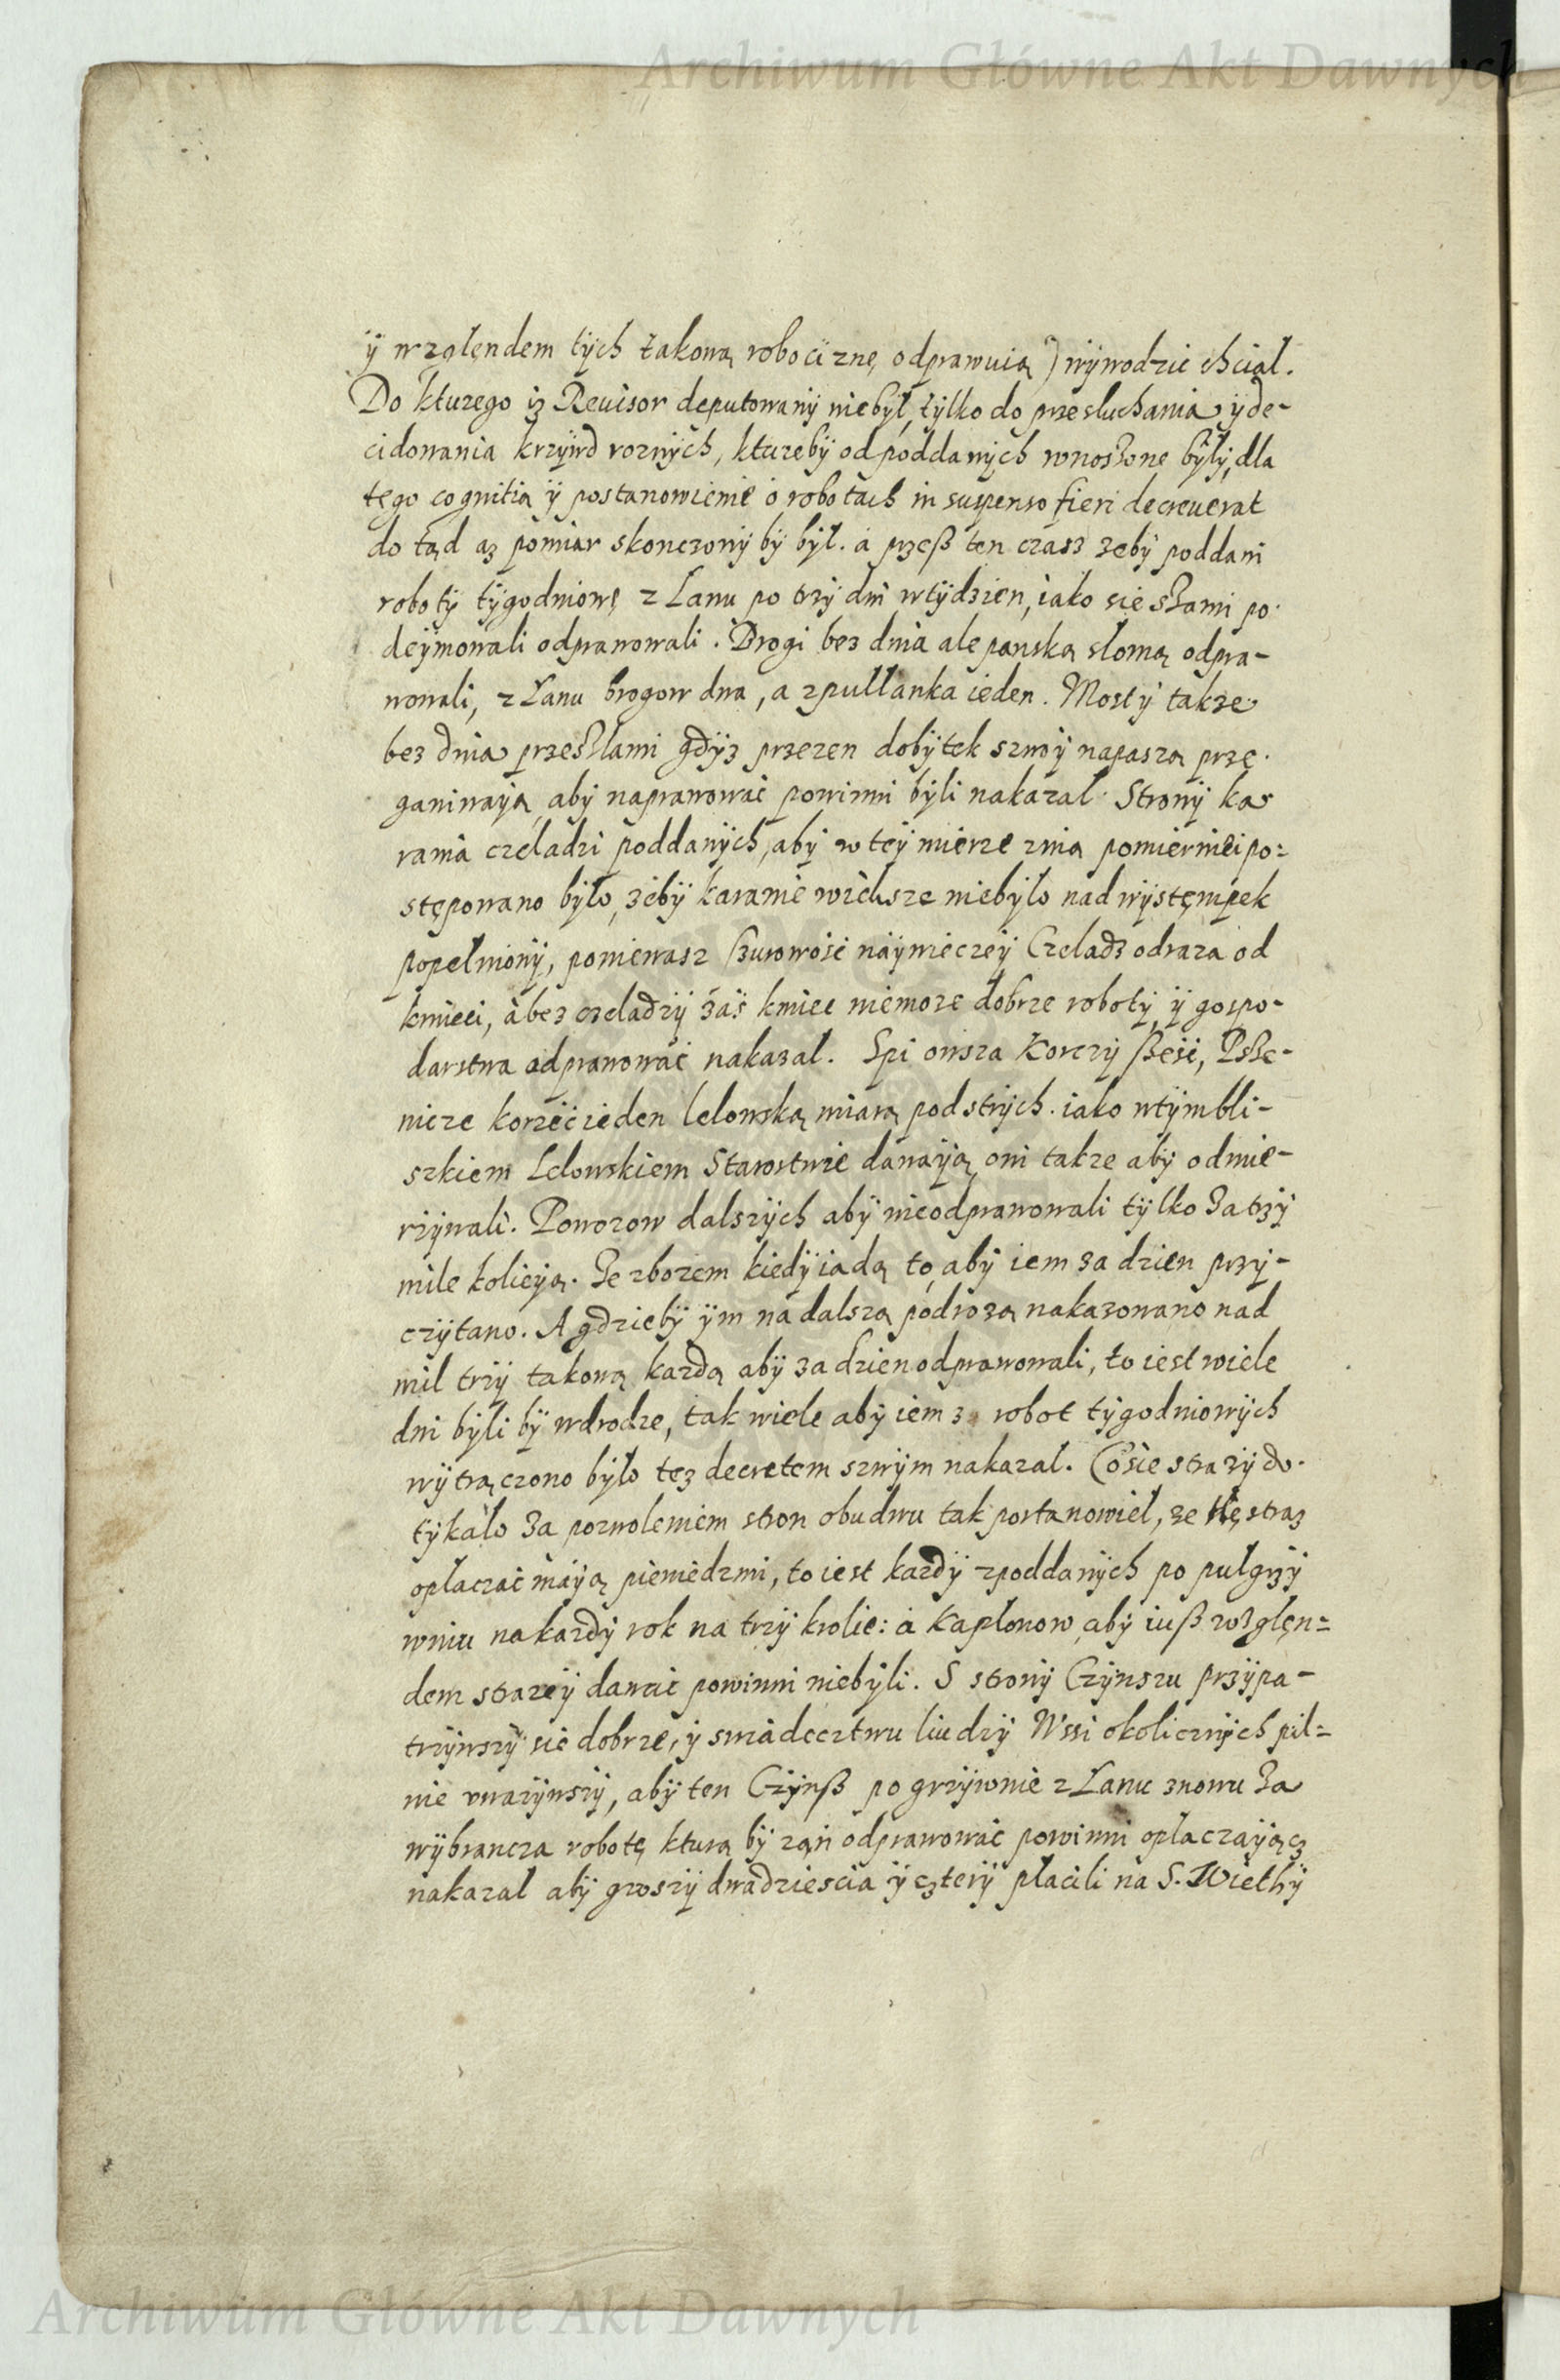 Archiwum Główne Akt Dawnych
ÿ wzglendem tÿch takową robociznę odprawuią) wÿwodzic chcial.
Do kturego iz Reuisor deputowanÿ niebÿł, tÿlko do przesluchania ÿ de-
cidowania krzÿwd roznÿch, kturebÿ od poddanÿch wnoszone bÿłÿ, dla
tego cognitia ÿ postanowienie o robotach in suspenso fieri decreuerat
do tąd aż pomiar skonczonÿ bÿ bÿł. a przeß ten czasz zebÿ poddani
robotÿ tÿgodniowe z Łanu po trzÿ dni w tÿdzien, iako sie szami po-
deÿmowali odprawowali. Brogi bez dnia ale panską słomą odpra-
wowali, z Łanu brogow dwa, a z pułłanka ieden. Mostÿ takze
bez dnia przeszłami gdÿz przezen dobÿtek szwoÿ na pasza prze-
ganiwaÿą, abÿ naprawować powinni bÿli nakazal. Stronÿ ka
rania czeladzi poddanÿch, abÿ w teÿ mierze z nią pomierniei po-
stępowano bÿło, żebÿ karanie wieksze niebÿło nad wÿstęmpek
popełnionÿ, poniewasz szurowość naÿwieczeÿ Czeladz odraza od
kmieci, a bez czeladzÿ zaś kmiec niemoze dobrze robotÿ ÿ gospo-
darstwa odprawować nakazal. Spi owsza Korczÿ szesć, Psze-
nicze korzec ieden lelowską miarą pod strÿch. iako w tÿm bli-
szkiem Lelowskiem Starostwie dawaÿą oni takze abÿ odmie-
rzÿwali. Powozow dalszÿch abÿ nieodprawowali tÿlko za trzÿ
mile kolieÿą. Ze zbozem kiedÿ iadą to abÿ iem za dzien przÿ-
czÿtano. A gdziebÿ ÿm na dalszą podrozą nakazowano nad
mil trzÿ takową kazdą abÿ za dzien odprawowali, to iest wiele
dni bÿli bÿ w drodze, tak wiele abÿ iem z robot tÿgodniowÿch
wÿtrączono bÿło tez decretem szwÿm nakazal. Co sie strazÿ do-
tÿkało za pozwoleniem stron obudwu tak postanowieł, ze tę straz
opłaczać maÿą pieniedzmi, to iest kazdÿ z poddanÿch po pulgrzÿ
wniu na kazdÿ rok na trzÿ krolie: a Kapłonow abÿ iuß wzglęn=
dem strazeÿ dawać powinni niebÿli. S stronÿ Czÿnszu przÿpa-
trzÿwszÿ sie dobrze, ÿ swiadecztwu liudzÿ Wssi okolicznÿch pil=
nie uwazÿwszÿ, abÿ ten Czÿnß po grzÿwnie z Łanu znowu za
wÿbrancza robotę kturą bÿ zań odprawować powinni opłaczaÿącz
nakazal abÿ groszÿ dwadziescia ÿ czterÿ płacili na S.
Archiwum Główne Akt Dawnych